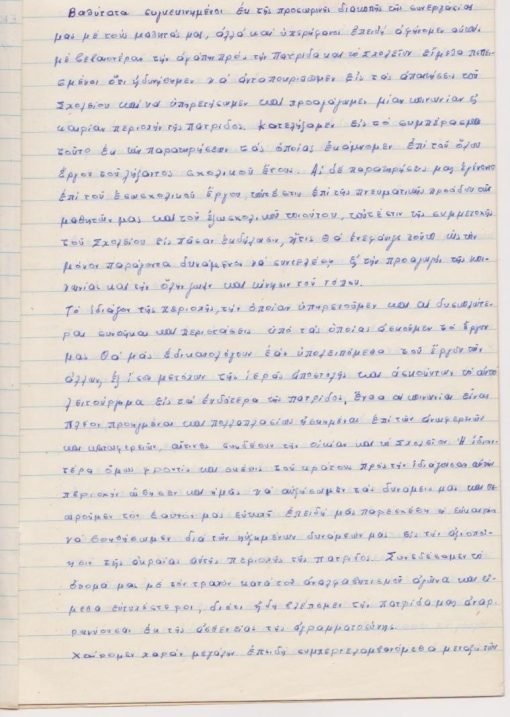 Βαθύτατα συγκεκινημένοι ἐκ τῆς προσωρινῆς διακοπῆς τῆς συνεργασίας
μας μὲ τοὺς μαθητάς μας, ἀλλὰ καὶ ὑπερήφανοι ἐπειδὴ ἀφήνομεν αὐτοὺς
μὲ βεβαιοτέραν τὴν ἀγάπην πρὸς τὴν Πατρίδα καὶ τὸ Σχολεῖον εἴμεθα πεπει
σμένοι ὅτι ἠδυνήθημεν νὰ ἀνταποκριθῶμεν εἰς τὰς ἀπαιτήσεις τοῦ
Σχολείου καὶ νὰ ὑπηρετήσωμεν καὶ προαγάγωμεν μίαν κοινωνίαν ἐξ
καιρίαν περιοχὴν τῆς πατρίδος. Κατελήξαμεν εἰς τὸ συμπέρασμα
τοῦτο ἐκ τῶν παρατηρήσεων τὰς ὁποίας ἐκάμνομεν ἐπὶ τοῦ ὅλου
ἔργου τοῦ λήξαντος σχολικοῦ ἔτους. Αἱ δὲ παρατηρήσεις μας ἐγένοντο
ἐπὶ τοῦ ἐσωσχολικοῦ ἔργου, τοὔτέστιν ἐπὶ τῆς πνευματικῆς προόδου τῶν
μαθητῶν μας καὶ τοῦ ἐξωσχολικοῦ τοιούτου, τοὔτέστιν τῆς συμμετοχῆς
τοῦ Σχολείου εἰς πᾶσαν ἐκδήλωσιν, ἥτις θὰ ἐνεφάνιζε τοῦτο ὡς τὸν
μόνον παράγοντα δυνάμενον νὰ συντελέσῃ εἰς τὴν προαγωγὴν τῆς κοι
νωνίας καὶ τὴν ὅλην ζωὴν καὶ κίνησιν τοῦ τόπου.
Τὸ ἰδιάζον τῆς περιοχῆς, τὴν ὁποίαν ὑπηρετοῦμεν καὶ αἱ δυσκολώτε
ραι συνθῆκαι καὶ περιστάσεις ὑπὸ τὰς ὁποίας ἀσκοῦμεν τὸ ἔργον
μας θὰ μᾶς ἐδικαιολόγουν ἐὰν ὑπολειπόμεθα τοῦ ἔργου τῶν
ἄλλων, ἐξ ἴσου μετόχων τῆς ἱερᾶς ἀποστολῆς καὶ ἀσκούντων τὸ αὐτὸ
λειτούργημα εἰς τὰ ἐνδότερα τῆς πατρίδος, ἔνθα αἱ κοινωνίαι εἶναι
πλέον προηγμέναι καὶ πολλαπλασίως ηὐξημέναι ἐπὶ τῶν ἀνωφερειῶν
καὶ κατωφερειῶν, αἵτινες συνδέουν τὴν οἰκίαν καὶ τὸ Σχολεῖον. Ἡ ἰδιαι
τέρα ὅμως φροντὶς καὶ σκέψις τοῦ κράτους πρὸς τὴν ἰδιάζουσαν αὐτὴν
περιοχὴν ὤθησεν καὶ ἡμᾶς νὰ αὐξήσωμεν τὰς δυνάμεις μας καὶ θε
ωροῦμεν τὸν ἑαυτόν μας εὐτυχῆ ἐπειδὴ μᾶς παρεσχέθη ἡ εὐκαιρία
νὰ βοηθήσωμεν διὰ τῶν ηὐξημένων δυνάμεών μας εἰς τὴν ἀξιοποί
ησιν τῆς ἀκραίας αὐτῆς περιοχῆς τῆς πατρίδος. Συνεδέσαμεν τὸ
ὄνομά μας μὲ τὸν τραχὺν κατὰ τοῦ ἀναλφαβητισμοῦ ἀγῶνα καὶ εἴ
μεθα εὐτυχέστεροι, διότι ἤδη βλέπομεν τὴν πατρίδα μας ἀναρ
ρωνύουσαν ἐκ τῆς ἀσθενείας τῆς ἀγραμματοσύνης.
Χαίρομεν χαρὰν μεγάλην ἐπειδὴ συμπεριλαμβανόμεθα μεταξὺ τῶν